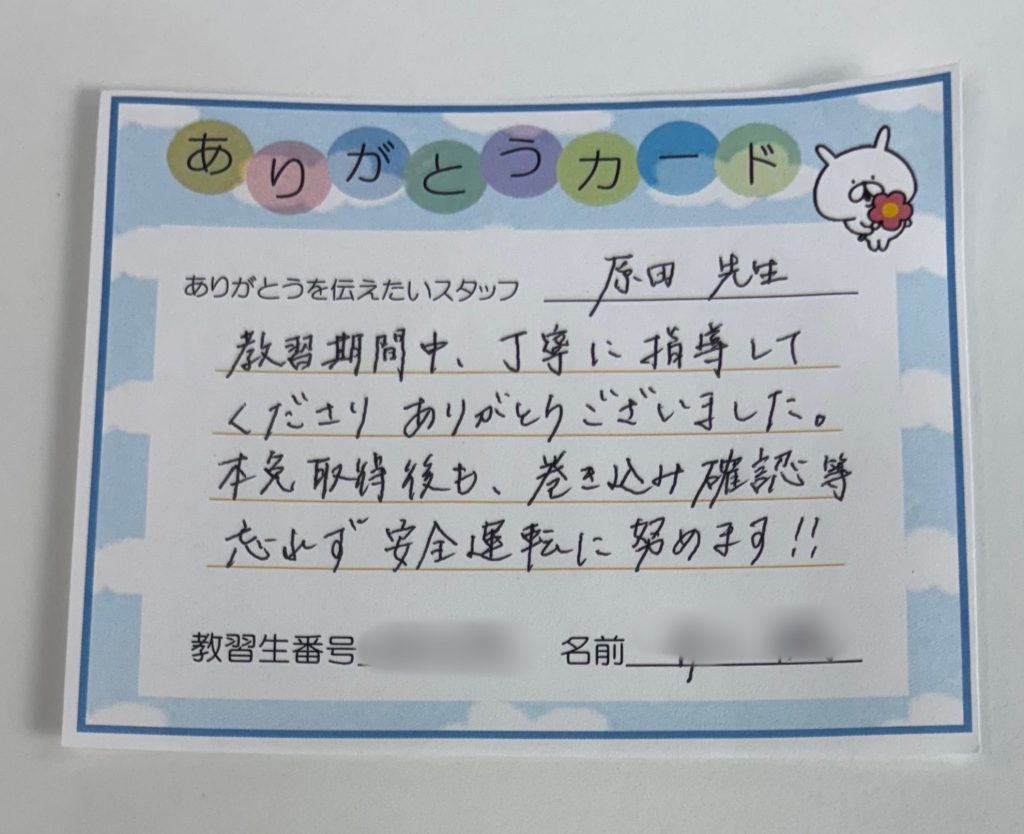 ありがとうカード
ありがとうを伝えたいスタッフ 原田 先生
教習期間中、丁寧に指導して
くださり ありがとうございました。
本免取得後も、巻き込み確認等
忘れず安全運転に努めます!!
教習生番号 名前